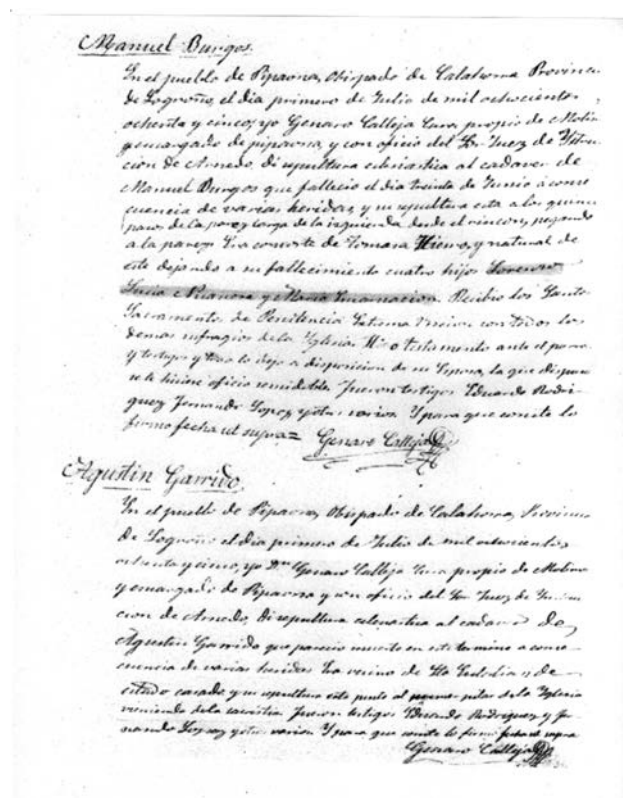 Manuel Burgos.
En el pueblo de Pipaona, Obispado de Calahorra Provincia
de Logroño, el dia primero de Julio de mil ochocientos
ochenta y cinco, yo Genaro Calleja Cura propio de Molin
y encargado de pipaona, y con oficio del Sr. Juez de Ystruc
cion de Arnedo, di sepultura eclesiastica al cadaver de
Manuel Burgos que fallecio el dia treinta de Junio á conse
cuencia de varias heridas, y su sepultura esta a los quince
pasos de la pared larga de la izquierda desde el rincon, pegando
a la pared. Era consorte de Tomasa Hierro, y natural de
este dejando a su fallecimiento cuatro hijos Lorenzo
Lucia Nicanora y Maria Encarnacion. Recibio los Santos
Sacramentos de Penitencia Extrema Uncion con todos los
demas sufragios de la Yglesia. Hizo testamento ante el parro
y testigos y todo lo dejo a disposicion de su Esposa, la que dispuso
se le hiciese oficio Fueron testigos Eduardo Rodri-
guez Fernando Lopez y otros varios. Y para que conste lo
firmo fecha ut supra= Genaro Calleja
Agustin Garrido
En el pueblo de Pipaona, Obispado de Calahorra, Provincia
de Logroño el dia primero de Julio de mil ochocientos
ochenta y cinco, yo Dn. Genaro Calleja Cura propio de Molino
y encargado de Pipaona y con oficio del Sor. Juez de Ynstruc
cion de Arnedo, di sepultura eclesiastica al cadaver de
Agustin Garrido que parecio muerto en este termino a conse-
cuencia de varias heridas. Era vecino de Sta Eulalia, y de
estado casado, y su sepultura esta junto al pilar de la Yglesia
viniendo de la sacristia. Fueron testigos Eduardo Rodriguez y Fer
nando Lopez y otros varios. Y para que conste lo firmo fecha ut supra
Genaro Calleja